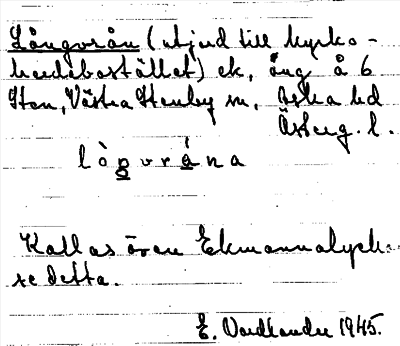 Långvrån (utjord till kyrko-
herdebostället) ek, äng å 6
Sten, Västra Stenby sn, Aska hd
Österg. l.
lò̱g̱vrá̱na
Kallas även Ekmannalyck-
se detta.
E. Nordlander 1945.